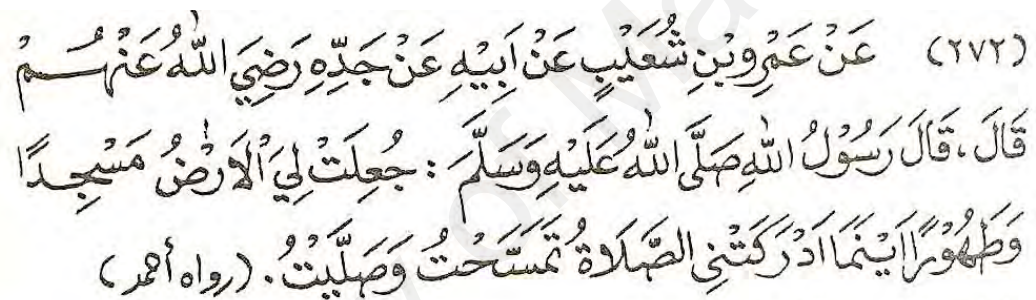 (٢٧٢) عَنْ عَمْرِوبْنِ شُعَيْبٍ عَنْ اَبِيْهِ عَنْ جَدِّهِ رَضِيَ اللّٰهُ عَنْهُمْ
قَالَ، قَالَ رَسُوْلُ اللّٰهِ صَلَّى اللّٰهُ عَلَيْهِ وَسَلَّمَ : جُعِلَتْ لِيَ اْلاَرْضُ مَسْجِدًا
وَطَهُوْرًا اَيْنَمَا اَدْرَكَتْنِى الصَّلَاةُ تَمَسَّحْتُ وَصَلَّيْتُ. (رواه أحمد)